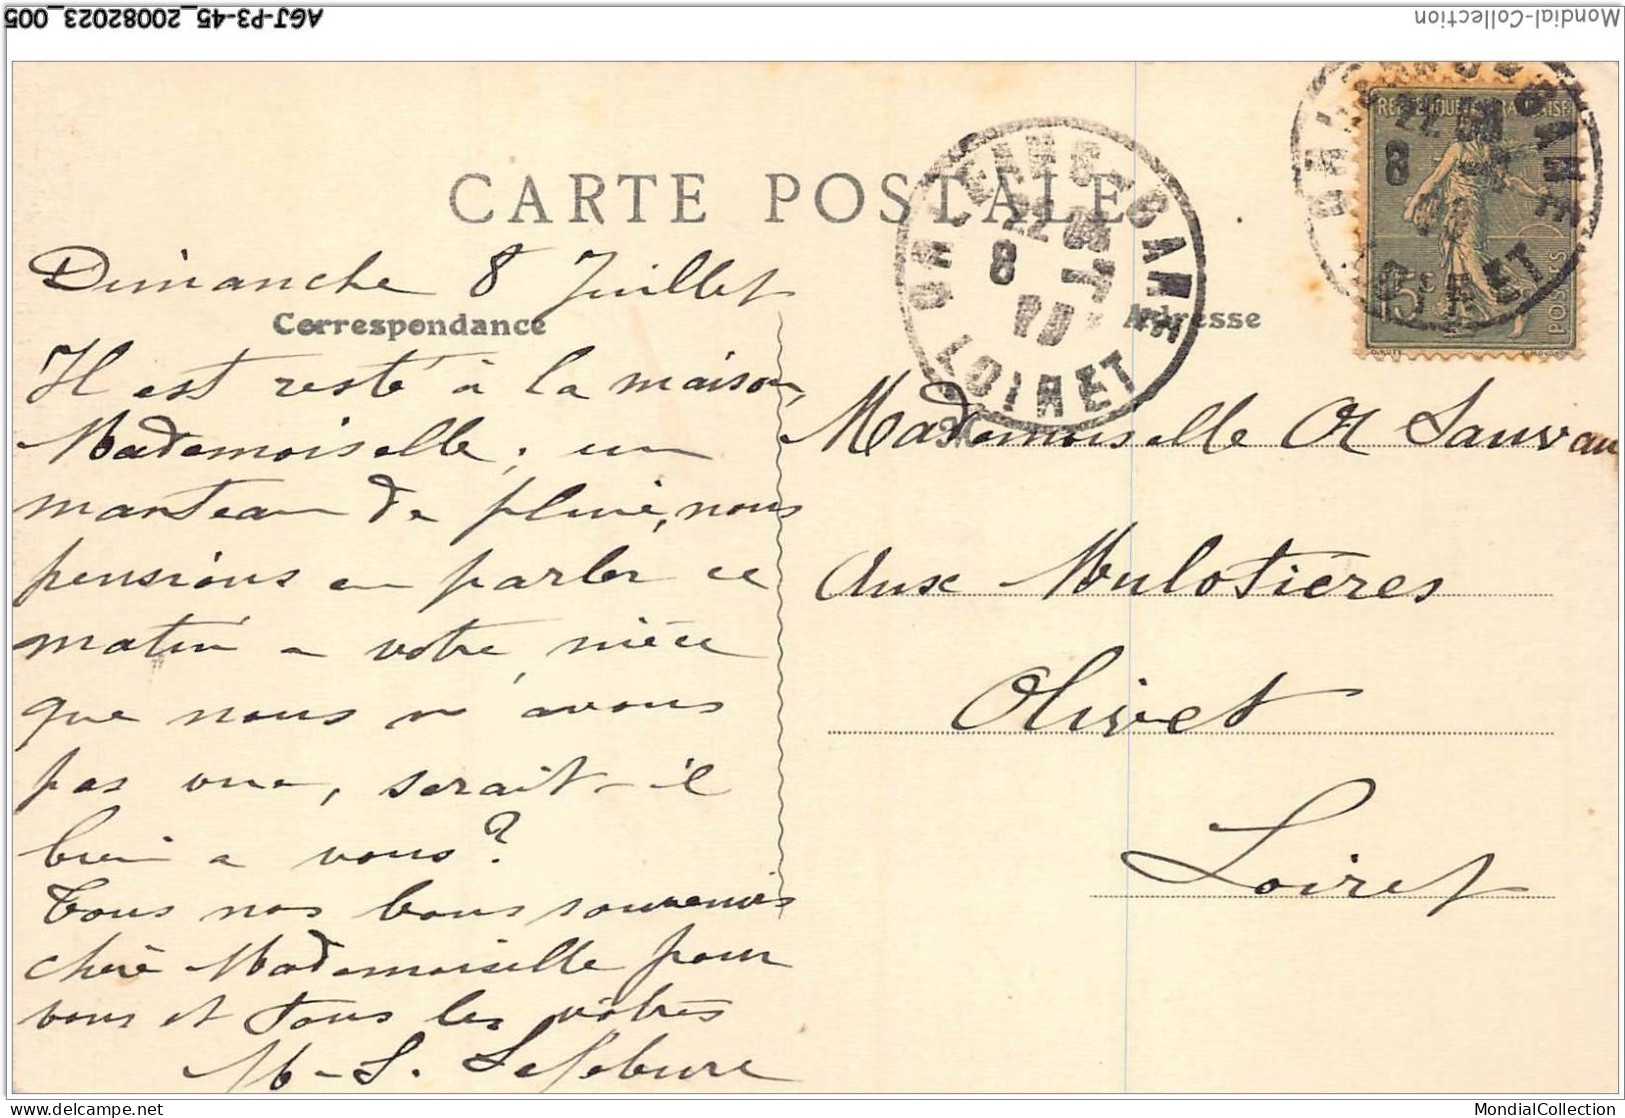 AGJ-P3-45_20082023_005
Mondial-Collection
CARTE POSTALE
Correspondance
Adresse
Dimanche 8 Juillet
Il est resté à la maison,
Mademoiselle, un
manteau de pluie, nous
pensions en parler ce
matin a votre nièce
que nous n'avons
pas vue, serait-il
bien a vous?
Tous nos bons souvenirs
chère Mademoiselle pour
vous et tous les vôtres
M-L. Lefebure
Mademoiselle A Sauvau
Aux Mulotières
Olivet
Loiret
ORLEANS-GARE
22
8 -7
LOIRET
REPUBLIQUE FRANÇAISE
15c
POSTES
GARE
22
8
LOIRET
MondialCollection